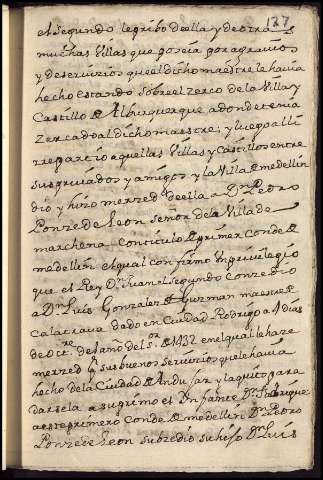 127
el segundo le pribo della y de otras
muchas Villas que poseia por agravios
y deservicios que el dicho maestre le havia
hecho estando sobre el zerco de la Villa y
Castillo de Alburquerque a donde tenia
zercado al dicho maestre; y luego alli
rrepartio aquellas Villas y Castillos entre
sus privados y amigos y la Villa de medellin
dio y hizo merzed de ella a Dn Pedro
Ponze de Leon señor de la Villa de
marchena con titulo de primer conde de
medellin el qual confirmo un privilegio
que el Rey Dn Juan el segundo conzedio
a Dn Luis Gonzalez de Guzman maestre de
Calatrava dado en Ciudad Rodrigo a dias
de Octre del año del sor de 1432 en el qual le haze
merzed por sus buenos servicios que le havia
hecho de la Ciudad de Andujar y la quito para
darsela a su primo el Infante Dn Fadrique
a este primero Conde de medellin Dn Pedro
Ponze de Leon subzedio su hijo Dn Luis